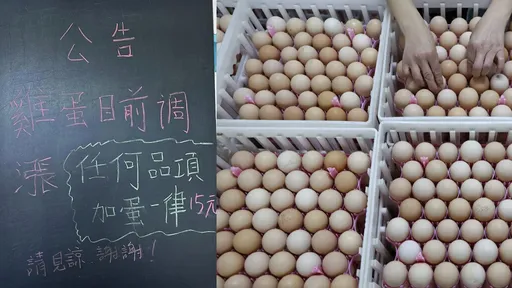 公告
雞蛋日前調
漲
任何品項
加蛋一律15元
請見諒.謝謝!